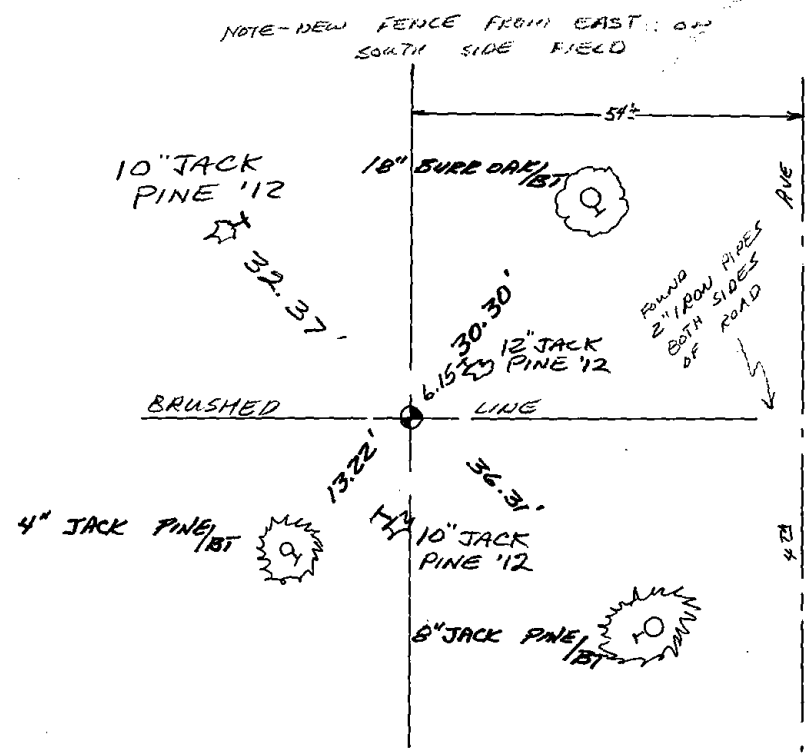 NOTE-NEW FENCE FROM EAST: ON
SOUTH SIDE FIELD
54'±
10" JACK
PINE '12
18" BURR OAK/BT
AVE
32.37'
FOUND
2" IRON PIPES
BOTH SIDES
OF ROAD
30.30'
12" JACK
PINE '12
6.15'
BRUSHED LINE
13.22'
36.31'
4" JACK PINE/BT
10" JACK
PINE '12
4TH
8" JACK PINE/BT